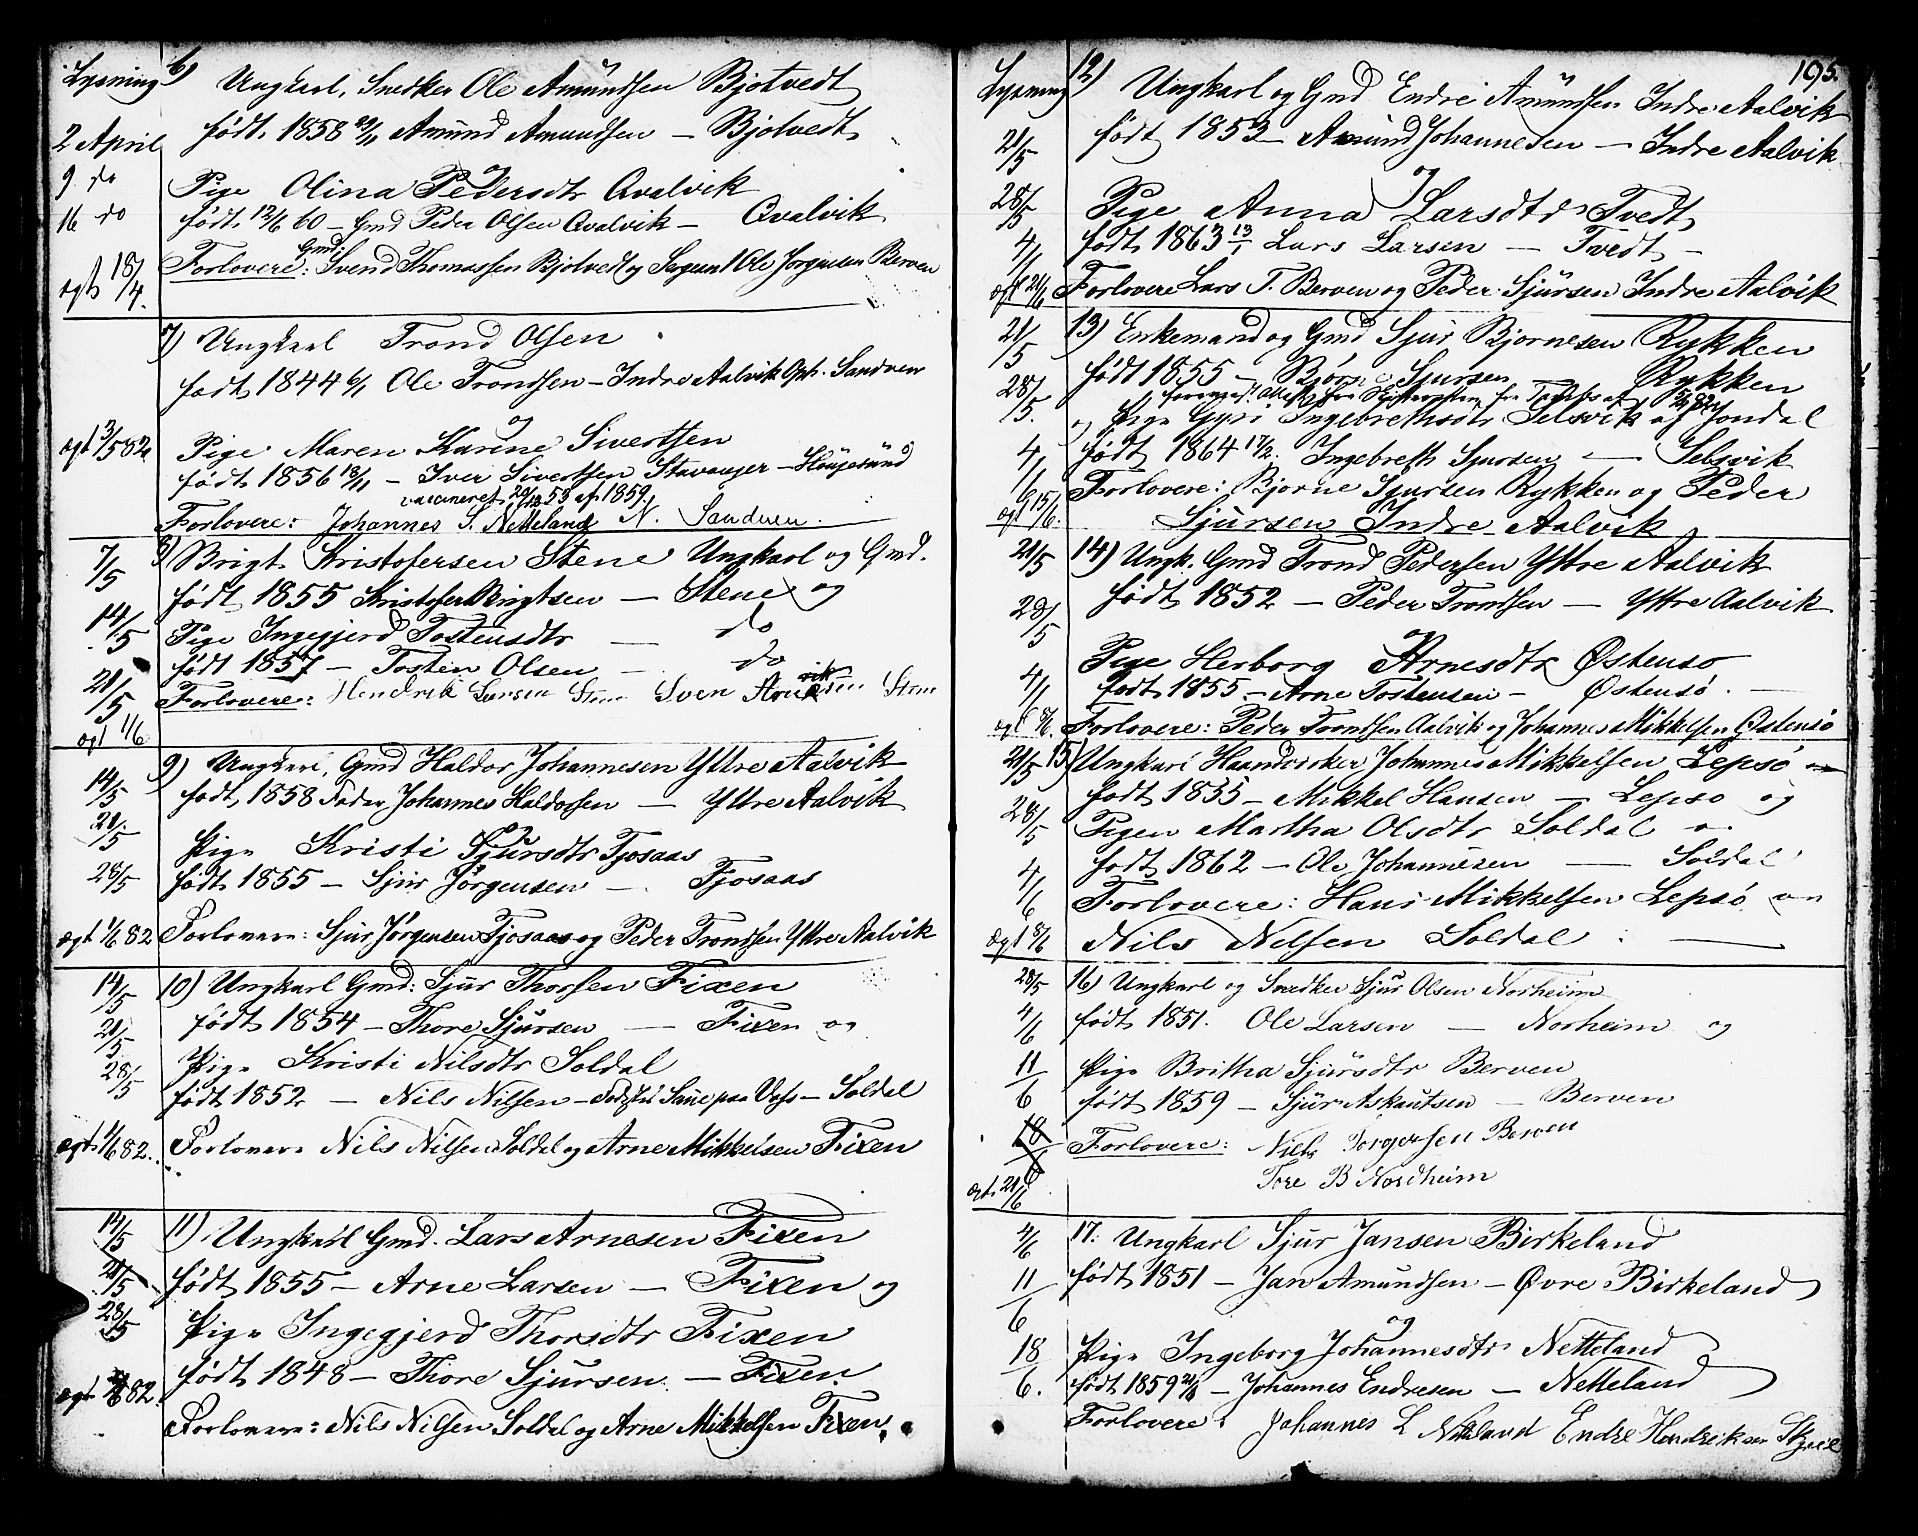 Lysning 6) Ungkarl, Snedker Ole Amundsen Bjotvedt
2 April født 1858 Amund Amundsen — Bjolvedt
9 do og
Pige Olina Pedersdtr Qvalvik
16 do født 12/6 60 — Gmd Peder Olsen Qvalvik — Qvalvik
Gmd:
Forlovere: Svend Thomassen Bjolvedt og Ole Jørgensen Berven
ægt 18/4.
7) Ungkarl Trond Olsen
født 1844 6/1 Ole Trondsen — Indre Aalvik Oph. Sandven
og
ægt 3/5 82 Pige Maren Karine Sivertsen
født 1856 18/11 — Iver Sivertsen Stavanger — Haugesund
vaccineret af 1859
Forlovere: Johannes S. Netteland N. Sandven.
7/5 8) Brigt Kristofersen Stene Ungkarl og Gmd.
født 1855 Kristofer Brigtsen — Stene og
14/5 Pige Ingegjerd Tostensdtr — do
født 1857 — Tosten Olsen — do
21/5 Forlovere: Hendrik Larsen Stene Sven Stene
ægt 1/6
14/5 9) Ungkarl, Gmd Haldor Johannesen Yttre Aalvik
født 1858 Fader Johannes Haldorsen — Yttre Aalvik
21/5 og
Pige Kristi Sjursdtr Tjosaas
28/5 født 1855 — Sjur Jørgensen — Tjosaas
ægt 1/6 82 Forlovere: Sjur Jørgensen Tjosaas og Peder Trondsen Yttre Aalvik
14/5 10) Ungkarl Gmd: Sjur Thorsen Fixen
21/5 født 1854 — Thore Sjursen — Fixen og
28/5 Pige Kristi Nilsdtr Soldal
født 1852 — Nils Nilsen — Saue paa Vos — Soldal
ægt 1/6 82. Forlovere Nils Nilsen Soldal og Arne Mikkelsen Fixen
14/5 11) Ungkarl Gmd. Lars Arnesen Fixen
21/5 født 1855 — Arne Larsen — Fixen og
28/5 Pige Ingegjerd Thorsdtr Fixen
født 1848 — Thore Sjursen — Fixen
ægt 82. Forlovere: Nils Nilsen Soldal og Arne Mikkelsen Fixen.
195.
Lysning 12) Ungkarl og Gmd Endre Amundsen Indre Aalvik
21/5 født 1853 — Amund Johannesen — Indre Aalvik
og
28/5 Pige Anna Larsdtr Tvedt
4/6 født 1863 13/1 Lars Larsen — Tvedt —
ægt 21/6 Forlovere Lars T. Berven og Peder Sjursen Indre Aalvik
21/5 13) Enkemand og Gmd Sjur Bjornesen Rykken
født 1855 — Bjørne Sjursen — Rykken
28/5. og Pige Ingebrethsdtr Selsvik af Jondal
4/6 født 1864 17/2. Ingebreth Sjursen — Selsvik
Forlovere: Bjorne Sjursen Rykken og Peder
ægt 15/6. Sjursen Indre Aalvik
21/5 14) Ungk. Gmd Trond Pedersen Yttre Aalvik
28/5 født 1852 — Peder Trondsen — Yttre Aalvik
og
Pige Herborg Arnesdtr Østensø
4/6 født 1855 — Arne Tostensen — Østensø.
ægt 8/6. Forlovere: Peder Trondsen Aalvik og Johannes Mikkelsen Østensø
21/5 15) Ungkarl Haandverker Johannes Mikkelsen Lepsø
født 1855 — Mikkel Hansen — Lepsø og
28/5 Pigen Martha Olsdtr Soldal
født 1862 — Ole Johannesen — Soldal
4/6 Forlovere: Hans Mikkelsen Lepsø og
Ægt 8/6 Nils Nilsen Soldal
28/5 16) Ungkarl og Snedker Sjur Olsen Norheim
4/6 født 1851. Ole Larsen — Norheim og
11/6 Pige Britha Sjursdtr Berven
født 1859 — Sjur Askautsen — Berven
18/6 Forlovere: Niels Torgersen Berven
ægt. 21/6 Tore B Nordheim
4/6 17. Ungkarl Sjur Jansen Birkeland
11/6 født 1851 — Jan Amundsen — Øvre Birkeland
og
18/6. Pige Ingeborg Johannesdtr Netteland
født 1859 — Johannes Endresen — Netteland
Forlovere: Johannes L Netteland Endre Hendriksen